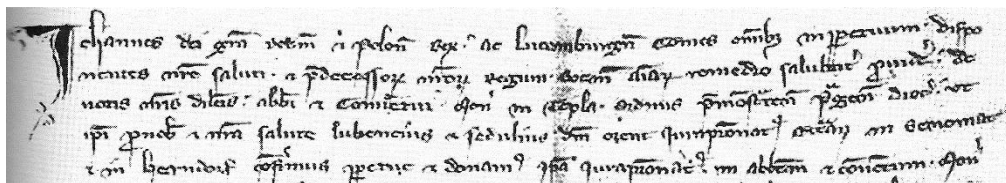 Johannes dei gra Boem et Polon Rex ac Lucemburgen Comes omnibz in perpetuum dispo
nentes nre saluti et pdecessorz nrorz Regum Boem aiarz remedio salubriter de
uotis nris dilcis abbi et Conuentui Mon in Tepla ordinis pmonstraten Pragen dioc ut
ipi p nob et nra salute lubencius et sedulius dm orent Jurapronat in
et in confirmus ppetue et donam Jurapronat in abbem et conuentum Mon